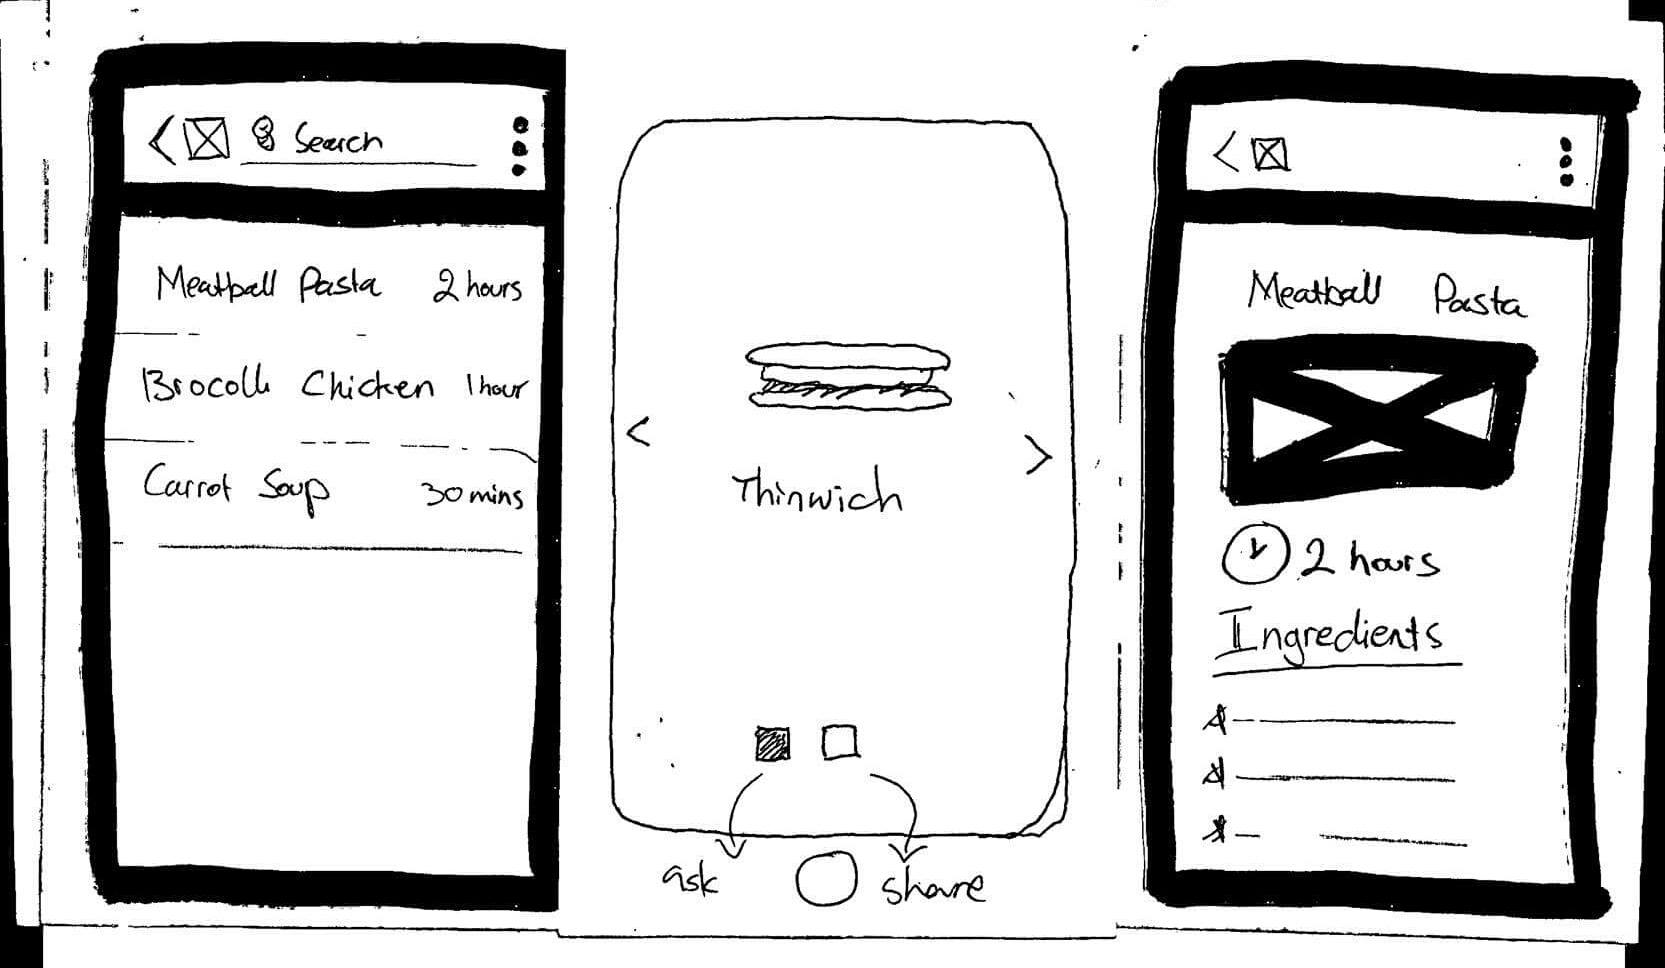 Search
Meatball Pasta 2 hours
Brocolli Chicken 1 hour
Carrot Soup 30 mins
Thinwich
ask
share
Meatball Pasta
2 hours
Ingredients